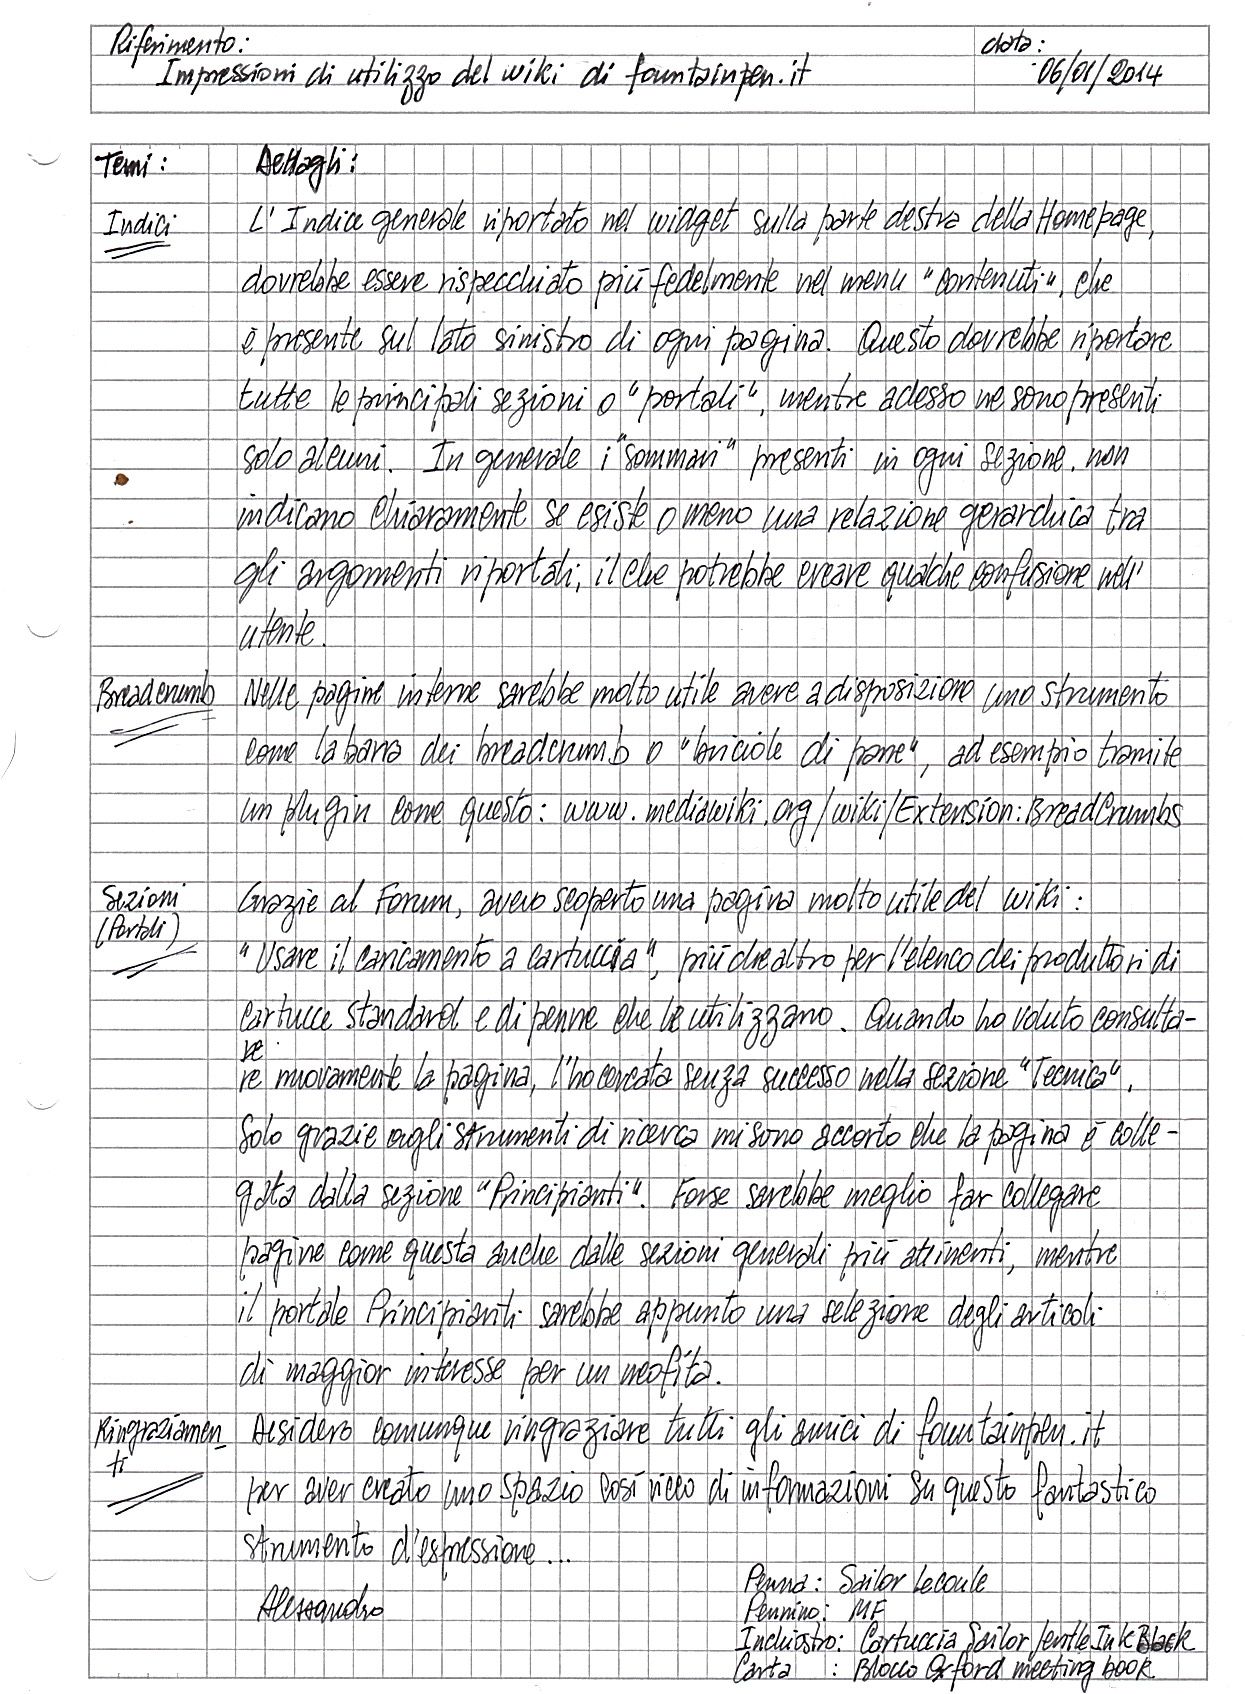 Riferimento: data:
Impressioni di utilizzo del wiki di fountainpen.it 06/01/2014
Temi: Dettagli:
Indici L'Indice generale riportato nel widget sulla parte destra della Homepage,
dovrebbe essere rispecchiato più fedelmente nel menu "contenuti", che
è presente sul lato sinistro di ogni pagina. Questo dovrebbe riportare
tutte le principali sezioni o "portali", mentre adesso ne sono presenti
solo alcuni. In generale i "sommari" presenti in ogni sezione, non
indicano chiaramente se esiste o meno una relazione gerarchica tra
gli argomenti riportati, il che potrebbe creare qualche confusione nell'
utente.
Breadcrumb Nelle pagine interne sarebbe molto utile avere a disposizione uno strumento
come la barra dei breadcrumb o "briciole di pane", ad esempio tramite
un plugin come questo: www.mediawiki.org/wiki/Extension:BreadCrumbs
Sezioni Grazie al Forum, avevo scoperto una pagina molto utile del wiki:
(Portali) "Usare il caricamento a cartuccia", più che altro per l'elenco dei produttori di
cartucce standard e di penne che le utilizzano. Quando ho voluto consulta-
re
re nuovamente la pagina, l'ho cercata senza successo nella sezione "Tecnica".
Solo grazie agli strumenti di ricerca mi sono accorto che la pagina è colle-
gata dalla sezione "Principianti". Forse sarebbe meglio far collegare
pagine come questa anche dalle sezioni generali più attinenti, mentre
il portale Principianti sarebbe appunto una selezione degli articoli
di maggior interesse per un neofita.
Ringraziamen- Desidero comunque ringraziare tutti gli amici di fountainpen.it
ti per aver creato uno spazio così ricco di informazioni su questo fantastico
strumento d'espressione...
Alessandro
Penna: Sailor Lecoule
Pennino: MF
Inchiostro: Cartuccia Sailor Jentle Ink Black
Carta : Blocco Oxford meeting book